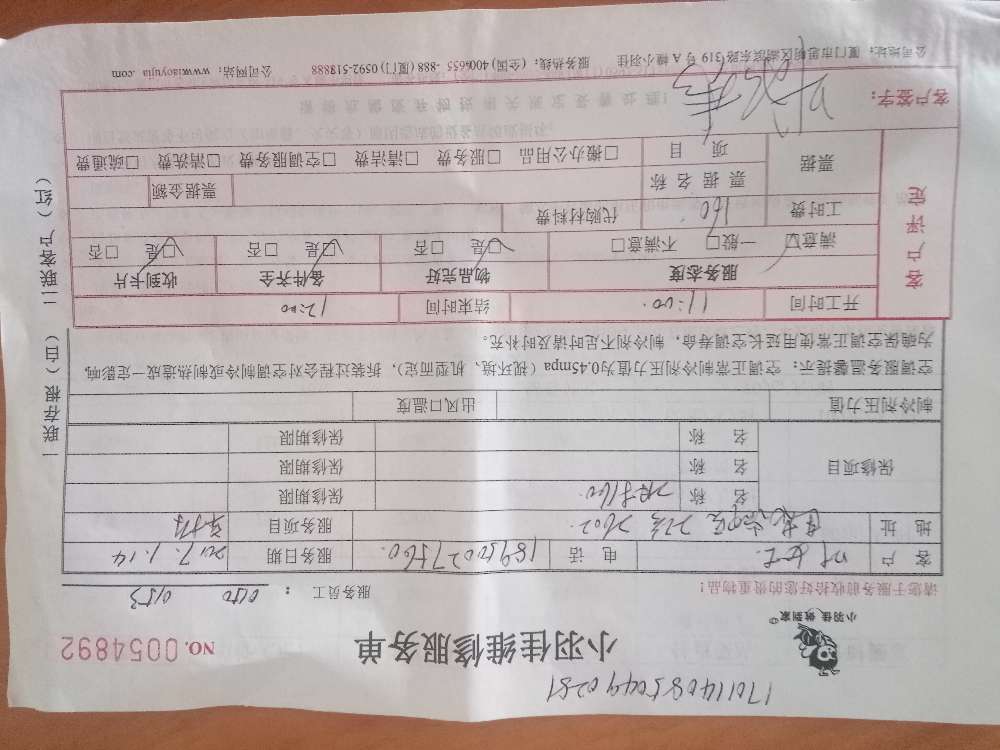 1701140850490281
小羽佳 做到家
小羽佳维修服务单
NO. 0054892
请您于服务前收拾好您的贵重物品！
服务员工： 0150 0153
客户 叶女士 电话 18950027560. 服务日期 2017.1.14
地址 22号 2602. 服务项目
保修项目 名称 保修期限
名称 保修期限
名称 保修期限
制冷剂压力值 出风口温度
空调服务温馨提示：空调正常制冷剂压力值为0.45mpa（视环境、机型而定），拆装过程会对空调制冷或制热造成一定影响，
为确保空调正常使用延长空调寿命，制冷剂不足时请及时补充。
开工时间 11:00. 结束时间 12:00
客户评定
服务态度 物品完好 备件齐全 收到卡片
满意□ 一般□ 不满意□ □是 □否 □是 □否 □是 □否
工时费 160 代购材料费
票据 票据名称 票据金额
项目 □搬办公用品 □服务费 □清洁费 □空调服务费 □清洗费 □疏通费
客户签字：
公司地址：厦门市思明区湖滨东路319号A幢小羽佳 服务热线：(全国)4006655-888(厦门)0592-518888 公司网站：www.xiaoyujia.com
一联存根（白） 二联客户（红）